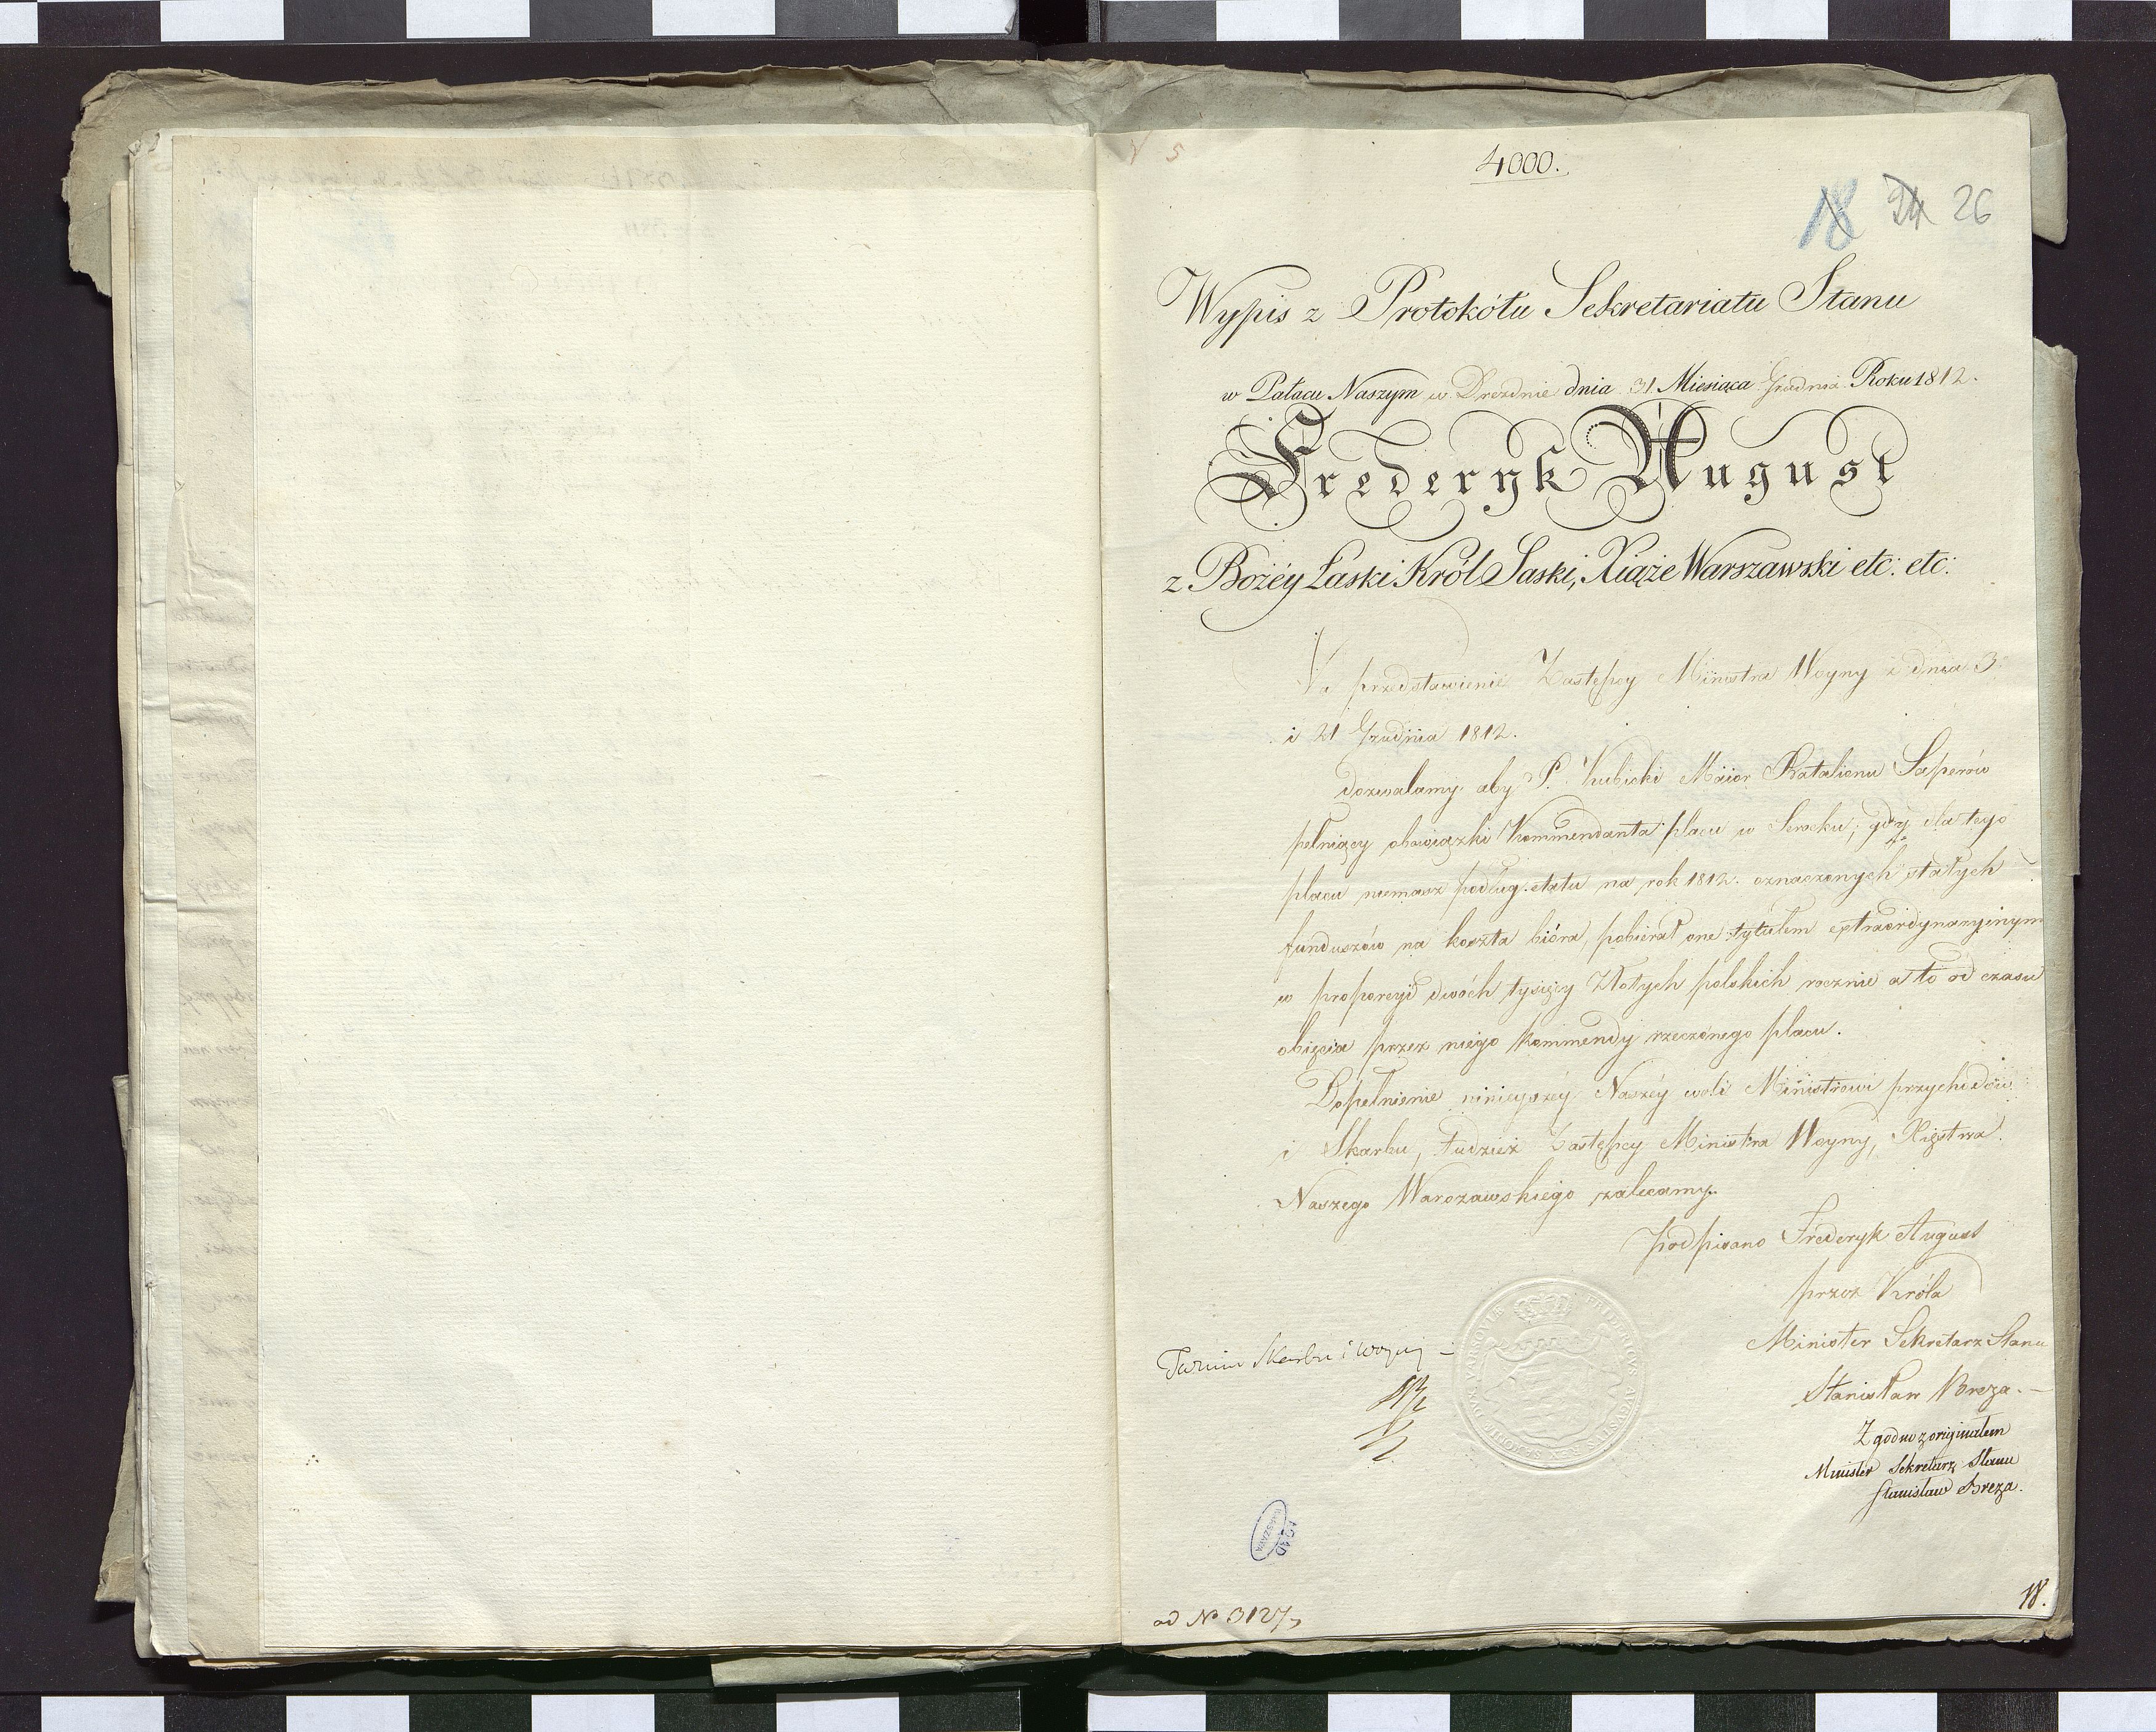 4000.
18 24 26
Wypis z Protokółu Sekretariatu Stanu
w Pałacu Naszym w Dreźdnie dnia 31 Miesiąca Grudnia Roku 1812.
Frederyk August
z Bożéy Łaski Król Saski, Xiąże Warszawski etc: etc:
Na przedstawienie Zastępcy Ministra Woyny z dnia 3.
i 21 Grudnia 1812.
dozwalamy aby P. Kubicki Maior Batalionu Saperów
pełniący obowiązki Kommendanta placu w Serocku, gdy dla tego
placu niemasz podług etatu na rok 1812. oznaczonych stałych
funduszów na koszta bióra, pobierał one tytułem extraordynaryinym
w proporcyi dwóch tysięcy Złotych polskich rocznie a to od czasu
obięcia przez niego kommendy rzeczonego placu.
Dopełnienie ninieyszéy Naszéy woli Ministrowi przychodów
i Skarbu, tudzież Zastępcy Ministra Woyny, Xięstwa
Naszego Warszawskiego zalecamy.
podpisano Frederyk August
przez Króla
Minister Sekretarz Stanu
Stanisław Breza.
Zgodno z originałem
Minister Sekretarz Stanu
Stanisław Breza.
Skarbu i Woyny
AGAD
WARSZAWA
ad No 3127
18.